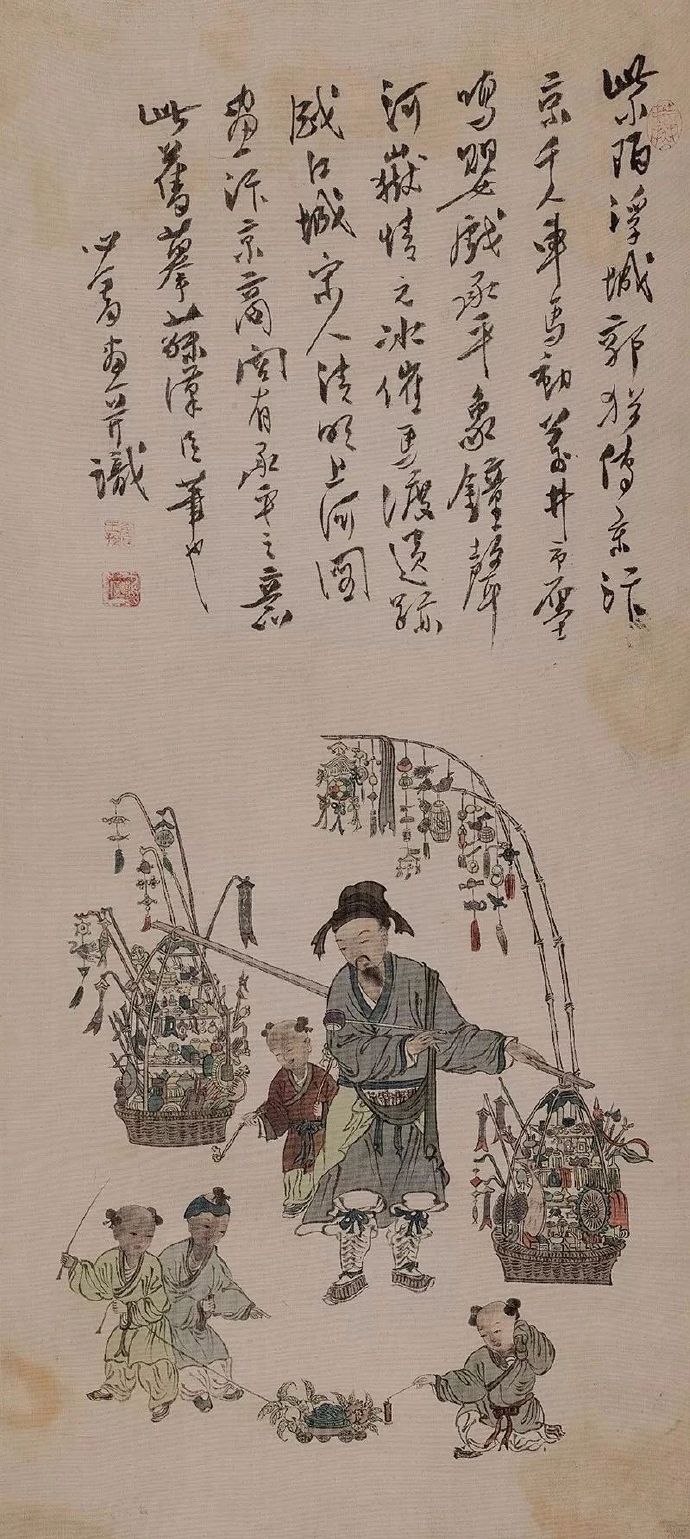 紫陌浮城郭猶傳宋汴
京千人車馬動萬井市廛
鳴嬰戲承平象鐘聲
河嶽情元冰催馬渡遺跡
感江城宋人清明上河圖
畫汴京商有承平之意
此舊摹蘇漢臣筆也
心畬畫并識